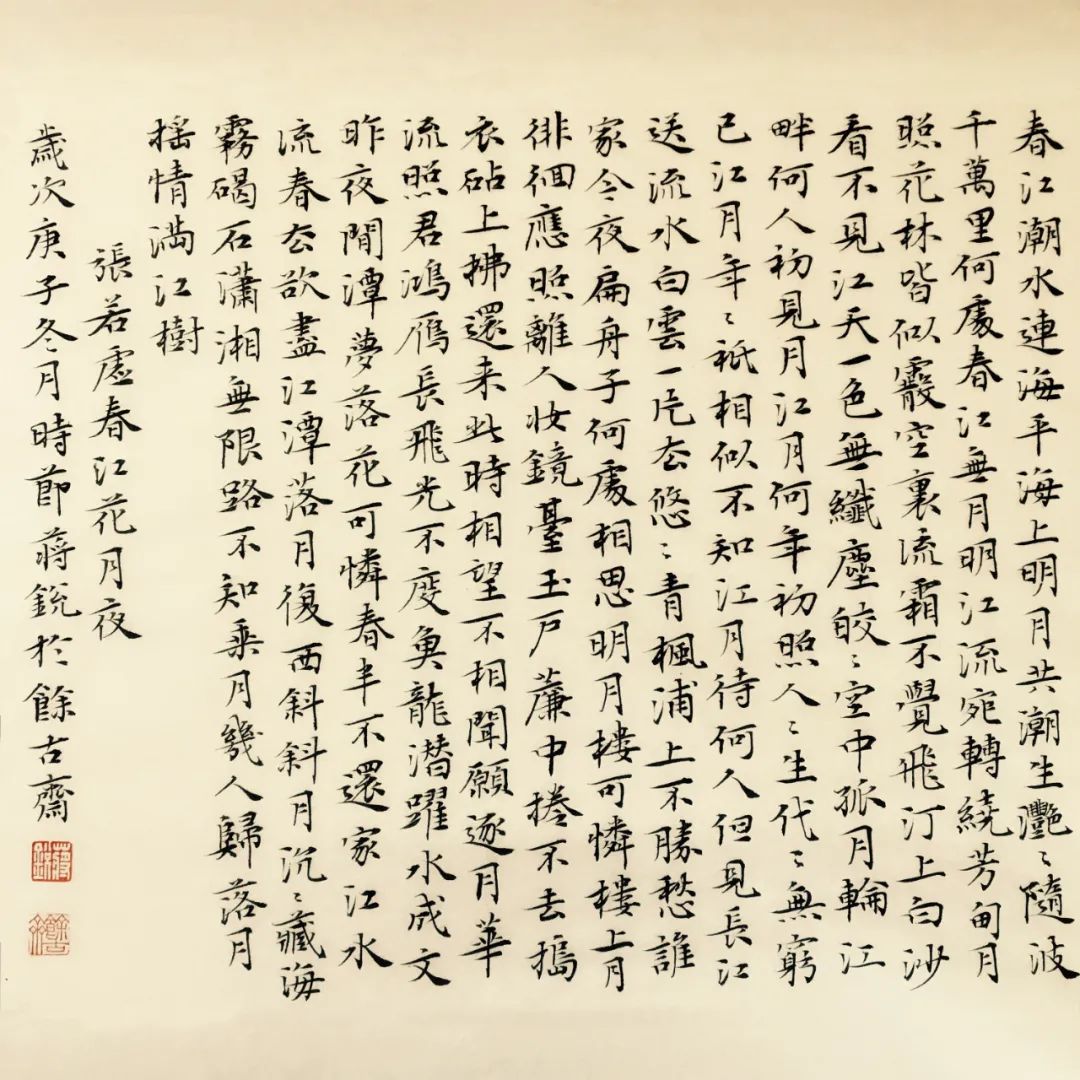 春江潮水連海平海上明月共潮生灧〻隨波
千萬里何處春江無月明江流宛轉繞芳甸月
照花林皆似霰空裏流霜不覺飛汀上白沙
看不見江天一色無纖塵皎〻空中孤月輪江
畔何人初見月江月何年初照人〻生代〻無窮
已江月年〻祇相似不知江月待何人但見長江
送流水白雲一片去悠〻青楓浦上不勝愁誰
家今夜扁舟子何處相思明月樓可憐樓上月
徘徊應照離人妝鏡臺玉戶簾中捲不去搗
衣砧上拂還来此時相望不相聞願逐月華
流照君鴻雁長飛光不度魚龍潛躍水成文
昨夜閒潭夢落花可憐春半不還家江水
流春去欲盡江潭落月復西斜斜月沉〻藏海
霧碣石瀟湘無限路不知乘月幾人歸落月
搖情滿江樹
張若虛春江花月夜
歲次庚子冬月時節蔣銳於餘古齋